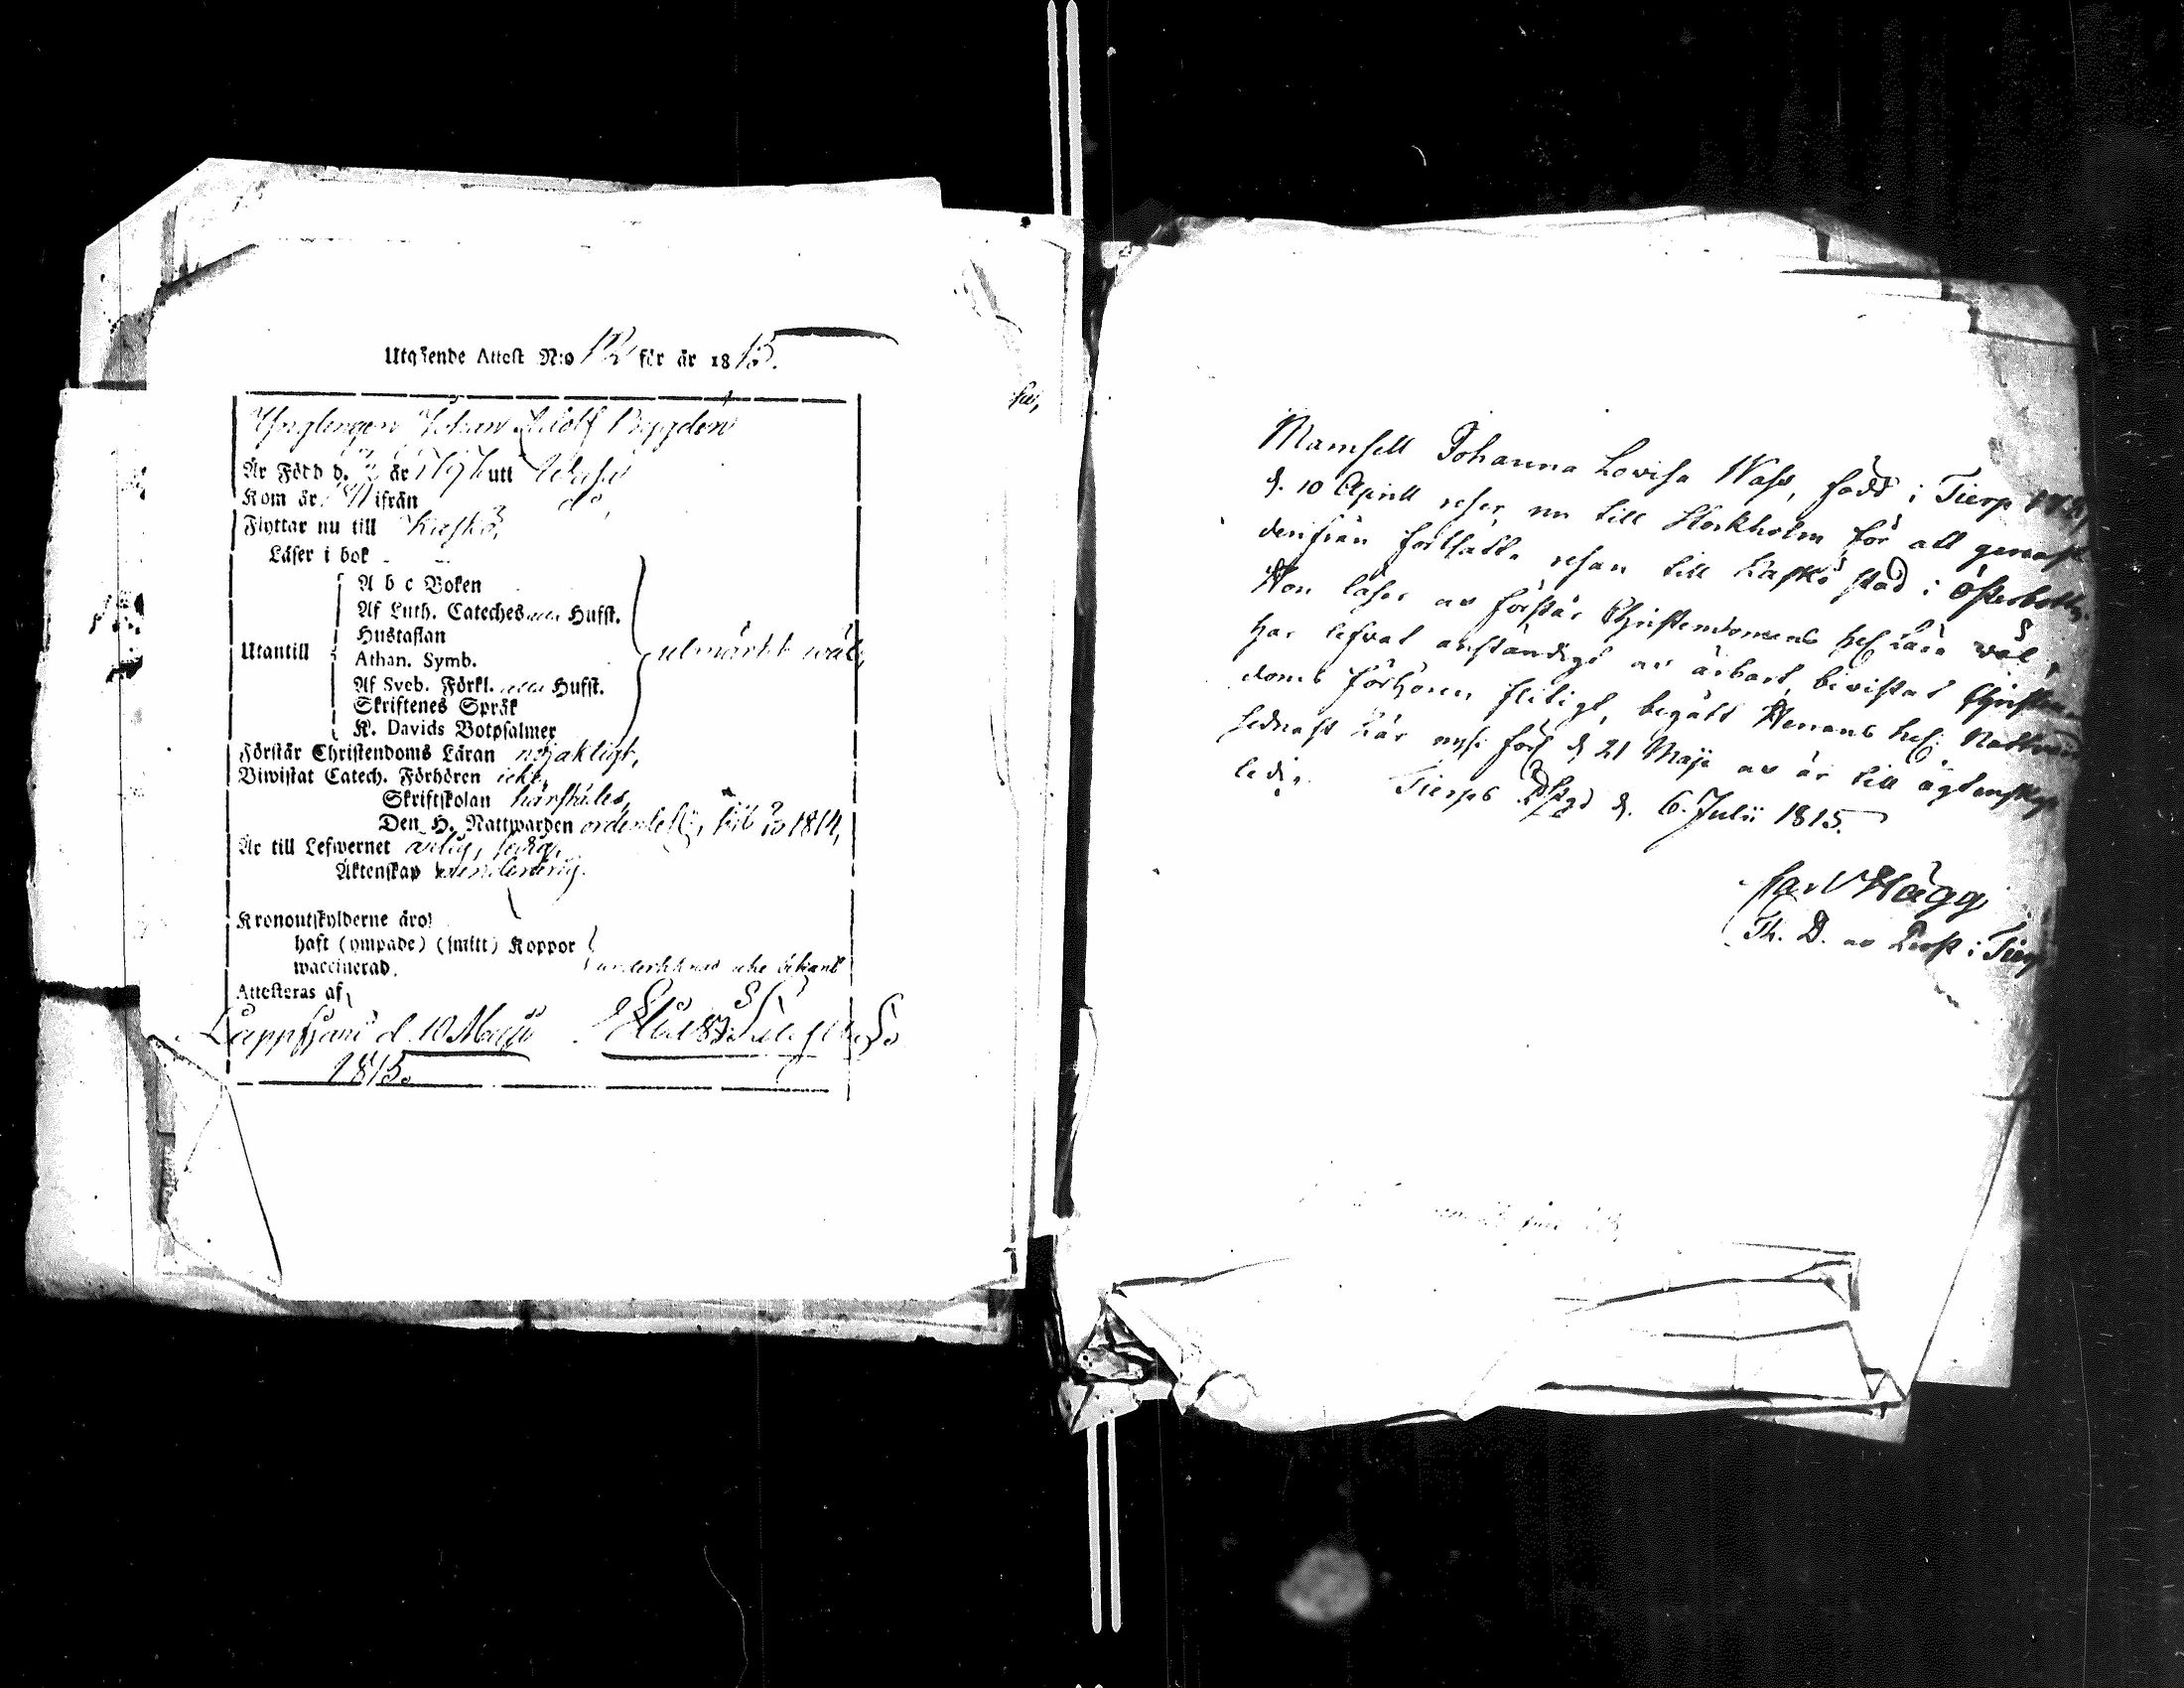 Utgående Attest N:o 12 för år 1815.
Ynglingen Johan Adolf Bygdén
Är Född d. år 1797 utt Wasa
Kom år ifrån do,
Flyttar nu till Kaskö,
Läser i bok
A b c Boken
Af Luth. Cateches utan Hufst.
Hustaflan
Utantill
Athan. Symb.
utmärkt wäl,
Af Sveb. Förkl. utan Hufst.
Skriftenes Språk
K. Davids Botpsalmer
Förstår Christendoms Läran nöjaktigt,
Biwistat Catech. Förhören icke,
Skriftskolan härstädes,
Den H. Nattwarden 1814,
Är till Lefwernet ärlig,
Äktenskap
Kronoutskylderne äro
haft (ympade) (smitt) Koppor
waccinerad.
Attesteras af,
Lappfjärd d. 10 Maji
1815.
Mamsell Johanna Lovisa Wass, född i Tierp
d. 10 Aprill reser nu till Stockholm för att genast
derifrån fortsätta resan till Kaskö stad i Österbotten.
Hon läser oc förstår Christendomens hel. Lära wäl,
har lefvat anständigt oc ärbart, bivistat Christen-
doms förhören flitigt, begått Herrans hel. Nattward
sednast här d 21 Maji oc är till ägtenskap
ledig. Tierps d. 6. Julii 1815.
Carl Hägg
Th. D. oc Prost i Tierp